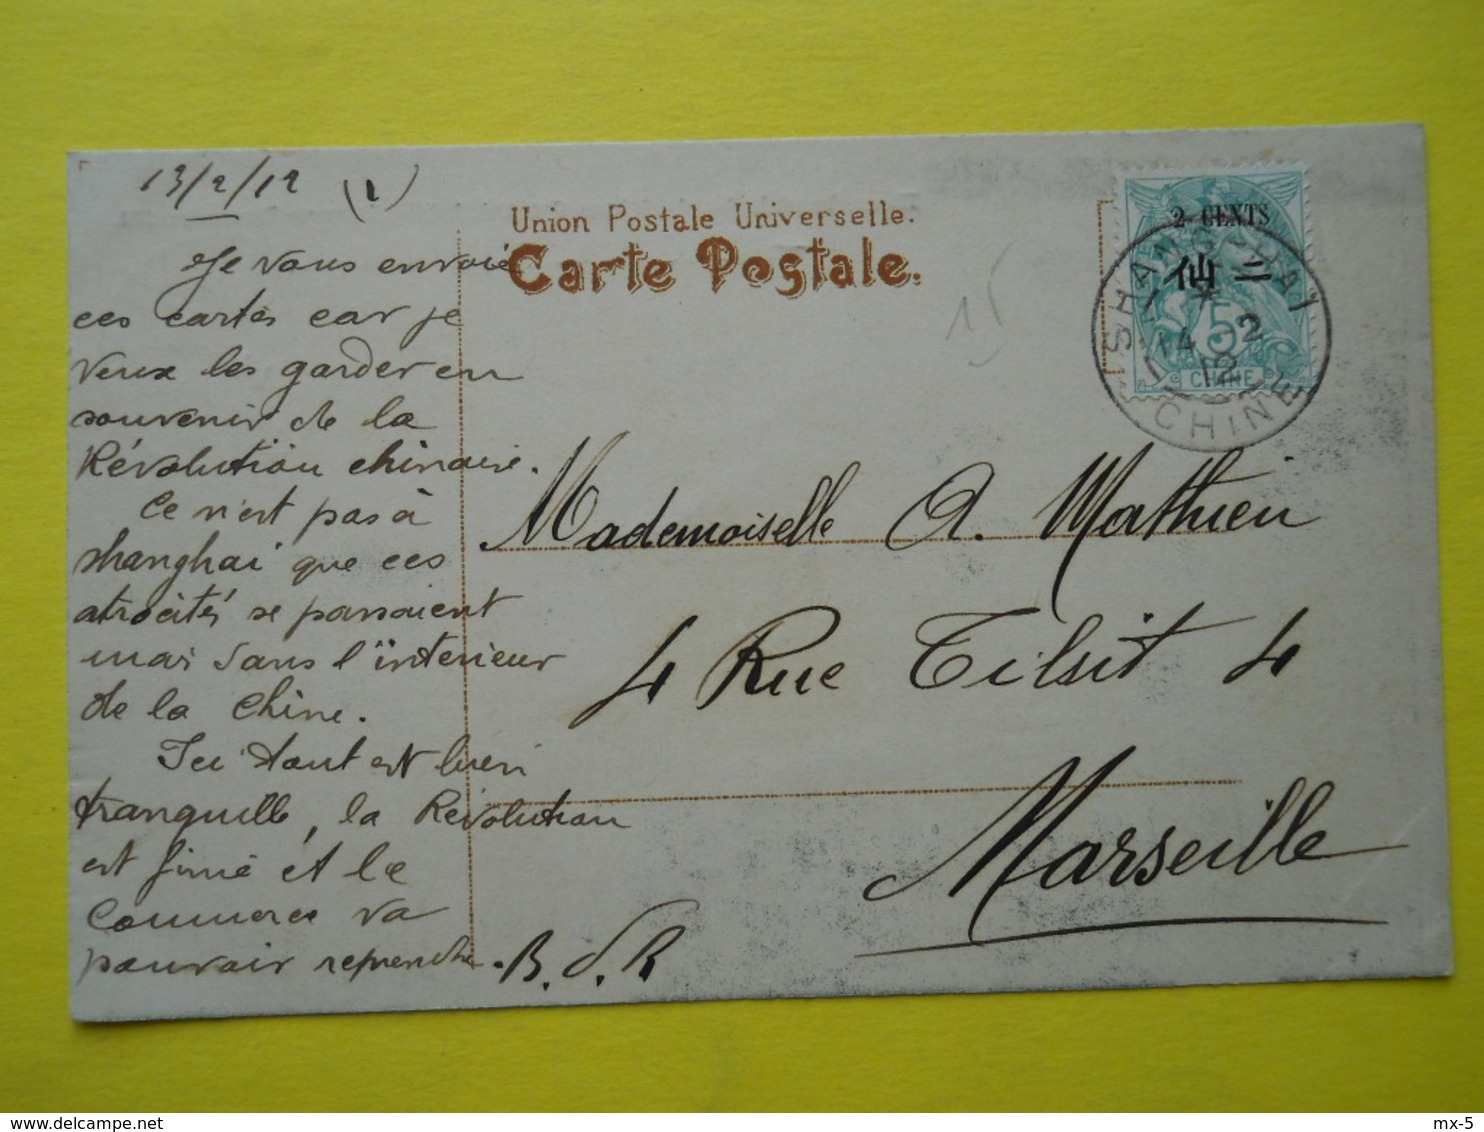 13/2/12 (1)
Je vous envoie
ces cartes car je
veux les garder en
souvenir de la
Révolution chinoise.
Ce n'est pas à
Shanghai que ces
atrocités se passaient
mais dans l'intérieur
de la Chine.
Ici tout est bien
tranquille, la Révolution
est finie et le
Commerce va
pouvoir reprendre.
B. d. R
Union Postale Universelle.
Carte Postale.
15
2 CENTS
仙二
5
CHINE
SHANG-HAI
14 -2
12
CHINE
Mademoiselle A. Mathieu
4 Rue Tilsit 4
Marseille
© www.delcampe.net
mx-5